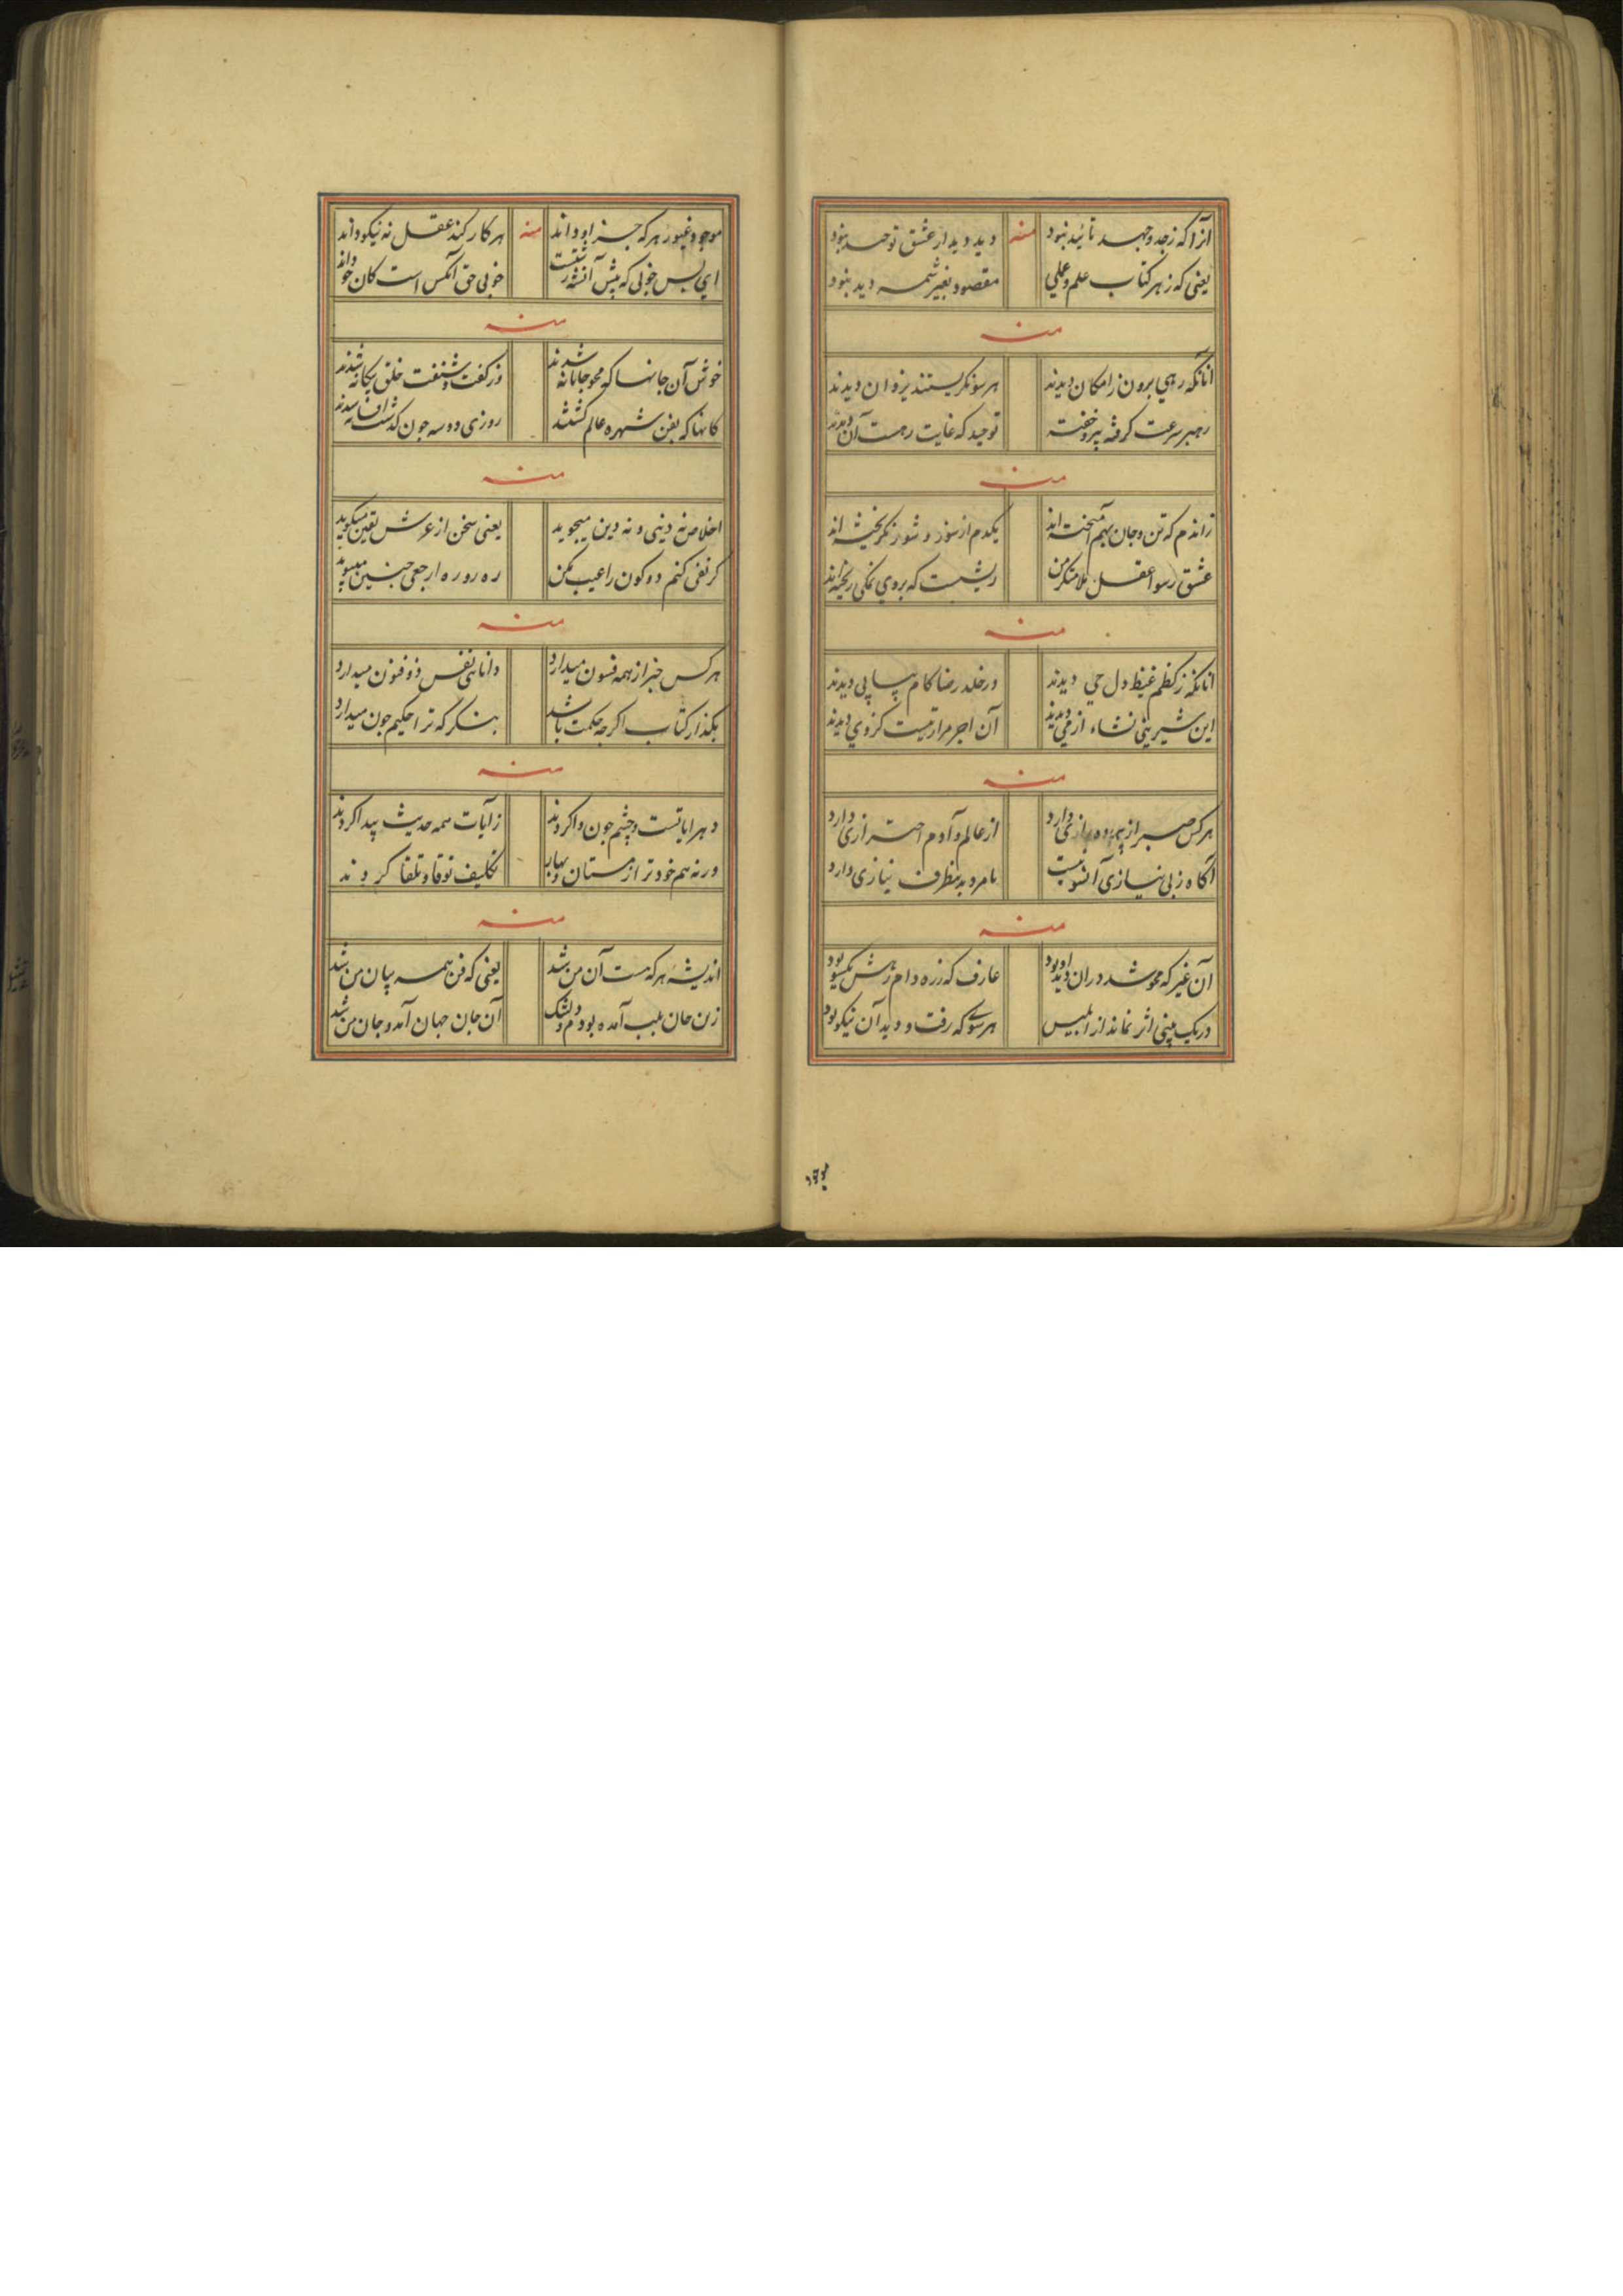 آنرا که ز جد و جهد تائید نبود منه دید و دیدار عشق توحید نبود
یعنی که ز هر کتاب علم و عملی مقصود بغیر شمه دید نبود
منه
آنانکه رهی برون ز امکان دیدند هر سو نگریستند یزدان دیدند
رهبر سرعت گرفته توحید که غایت رهست آن دیدند
منه
زاندم که تن و جان بهم آمیخته اند یکدم از سوز و شور نگریخته اند
عشق رسوا عقل ملامتگر من ریشیست که بروی نمکی ریخته اند
منه
آنانکه ز کظم غیظ دل حی دیدند در خلد رضا کام پیاپی دیدند
این شیرینی نشاء از می دیدند آن اجر مرارتیست کز وی دیدند
منه
هر کس از پرده رازی دارد از عالم و آدم احترازی دارد
آگاه ز بی نیازی آنسو نیست نامرد بهر طرف نیازی دارد
منه
آن غیر که محو شد در آن دید او بود عارف که ز ره دام رهش یکسو بود
در نیک بینی اثر نماند از ابلیس هر سوی که رفت و دید آن نیکو بود
۱۶۷
موجود غیور هر که جز او داند منه هر کار کند عقل نه نیکو داند
ای بس خوبی که پیش آن زشتست خوبی حق آنکس است کان خو داند
منه
خوش آن جانها که محو جانانه شدند وز گفت و شنفت خلق بیگانه شدند
کانها که بفن شهره عالم گشتند روزی دو سه چون گذشت افسانه شدند
منه
اخلاص نه دینی و نه دین میجوید یعنی سخن از عرش یقین میگوید
گر نفی کنم دو کون را عیب مکن ره رو ره ارجعی چنین میپوید
منه
هر کس خبر از همه فسون میدارد دانائی نفس ذو فنون میدارد
بگذار کتاب اگر چه حکمت باشد بنگر که ترا حکیم چون میدارد
منه
چشم چون واکردند ز آیات همه حدیث پیدا کردند
ورنه هم خودتر از مستان تکلیف کردند
منه
اندیشه هر که مست آن من شد یعنی که فن همه بیان من شد
زین جان بلب آمده بودم دلتنگ آن جان جهان آمد و جان من شد